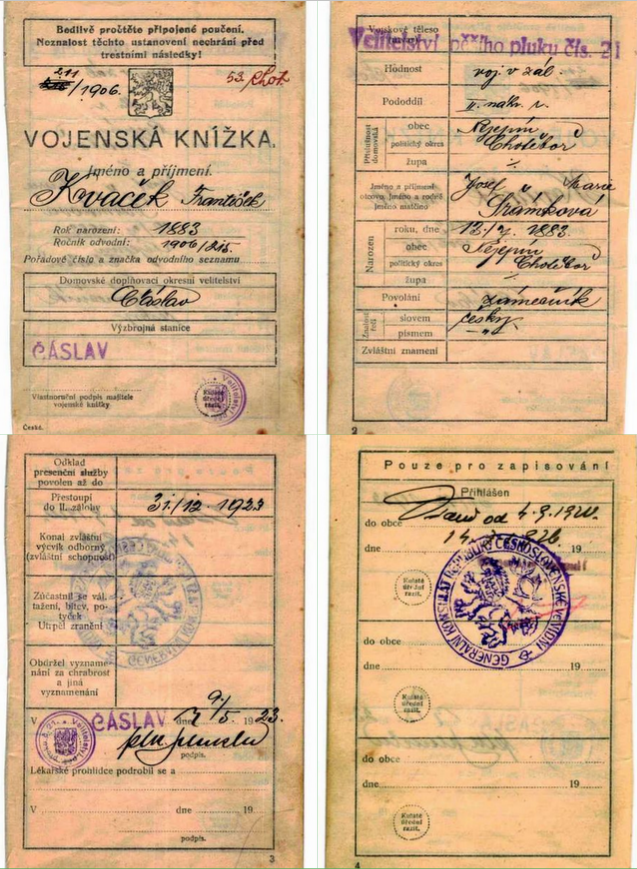 Bedlivě pročtěte připojené poučení.
Neznalost těchto ustanovení nechrání před
trestními následky!
211
/1906.
53.
VOJENSKÁ KNÍŽKA.
Jméno a příjmení.
Kvaček František
Rok narození: 1883
Ročník odvodní: 1906/
Pořadové číslo a značka odvodního seznamu
Domovské doplňovací okresní velitelství
Čáslav
Výzbrojná stanice
ČÁSLAV
Vlastnoruční podpis majitele
vojenské knížky
Kulaté
úřední
razít.
České.
Vojskové těleso
Velitelství pěšího pluku čís. 21
Hodnost voj. v zál.
Pododdíl II. náhr. r.
Příslušnost domovská
obec
politický okres Chotěboř
župa
Jméno a příjmení
otcovo, jméno a rodné
jméno matčino
Josef Marie
Šrámková
Narozen
roku, dne 1883
obec
politický okres Chotěboř
župa
Povolání zámečník
Znalost řeči
slovem česky
písmem
Zvláštní znamení
2
Odklad
presenční služby
povolen až do
Přestoupí
do II. zálohy 31/12 1923
Konal zvláštní
výcvik odborný
(zvláštní schopnost)
Zúčastnil se vál.
tažení, bitev, po-
tyček
Utrpěl zranění
Obdržel vyzname-
nání za chrabrost
a jiná
vyznamenání
V ČÁSLAV dne 9/5 1923.
podpis.
Lékařské prohlídce podrobil se a
V dne 19
podpis.
3
Pouze pro zapisování
Přihlášen
do obce od 4.9.
dne 14. 19
Kulaté
úřední
razít.
GENERÁLNÍ KONSULÁT REPUBLIKY ČESKOSLOVENSKÉ VE VÍDNI
do obce
dne 19
Kulaté
úřední
razít.
do obce
dne 19
Kulaté
úřední
razít.
4